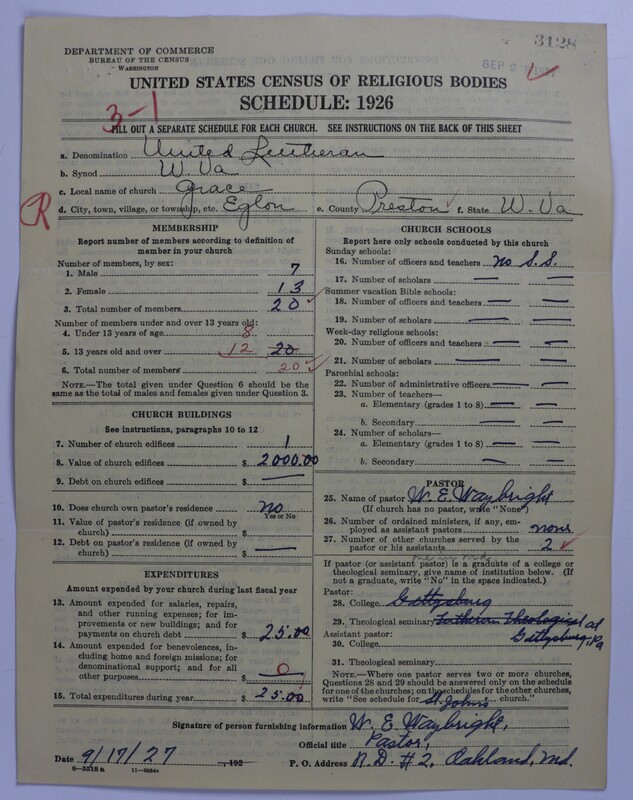 3128
DEPARTMENT OF COMMERCE
BUREAU OF THE CENSUS
WASHINGTON
SEP 2
UNITED STATES CENSUS OF RELIGIOUS BODIES
SCHEDULE: 1926
3-1
FILL OUT A SEPARATE SCHEDULE FOR EACH CHURCH. SEE INSTRUCTIONS ON THE BACK OF THIS SHEET
a. Denomination United Lutheran
b. Synod W. Va
c. Local name of church Grace
R
d. City, town, village, or township, etc. Eglon e. County Preston f. State W. Va
MEMBERSHIP
Report number of members according to definition of
member in your church
Number of members, by sex:
1. Male 7
2. Female 13
3. Total number of members 20
Number of members under and over 13 years old:
4. Under 13 years of age 8
5. 13 years old and over 12 20
6. Total number of members 20
NOTE.—The total given under Question 6 should be
same as the total of males and females given under Question 3.
CHURCH BUILDINGS
See instructions, paragraphs 10 to 12
7. Number of church edifices 1
8. Value of church edifices $ 2000.00
9. Debt on church edifices $ —
10. Does church own pastor's residence no
Yes or No
11. Value of pastor's residence (if owned by
church) $
12. Debt on pastor's residence (if owned by
church) $ —
EXPENDITURES
Amount expended by your church during last fiscal year
13. Amount expended for salaries, repairs,
and other running expenses; for im-
provements or new buildings; and for
payments on church debt $ 25.00
14. Amount expended for benevolences, in-
cluding home and foreign missions; for
denominational support; and for all
other purposes $ 0
15. Total expenditures during year $ 25.00
CHURCH SCHOOLS
Report here only schools conducted by this church
Sunday schools:
16. Number of officers and teachers no S.S.
17. Number of scholars — —
Summer vacation Bible schools:
18. Number of officers and teachers — —
19. Number of scholars — —
Week-day religious schools:
20. Number of officers and teachers — —
21. Number of scholars — —
Parochial schools:
22. Number of administrative officers — —
23. Number of teachers—
a. Elementary (grades 1 to 8) — —
b. Secondary — —
24. Number of scholars—
a. Elementary (grades 1 to 8) — —
b. Secondary — —
PASTOR
25. Name of pastor W. E. Waybright
(If church has no pastor, write "None")
26. Number of ordained ministers, if any, em-
ployed as assistant pastors none
27. Number of other churches served by the
pastor or his assistants 2
If pastor (or assistant pastor) is a graduate of a college or
theological seminary, give name of institution below. (If
not a graduate, write "No" in the space indicated.)
Pastor:
28. College Gettysburg
29. Theological seminary Lutheran Theological at
Gettysburg, Pa
Assistant pastor:
30. College
31. Theological seminary
NOTE.—Where one pastor serves two or more churches,
Questions 28 and 29 should be answered only on the schedule
for one of the churches; on the schedules for the other churches,
write "See schedule for St. John's church."
Signature of person furnishing information W. E. Waybright,
Official title Pastor,
Date 9/17/27, 192 P. O. Address R.D. #2, Oakland, Md.
8-5518a 11-9034